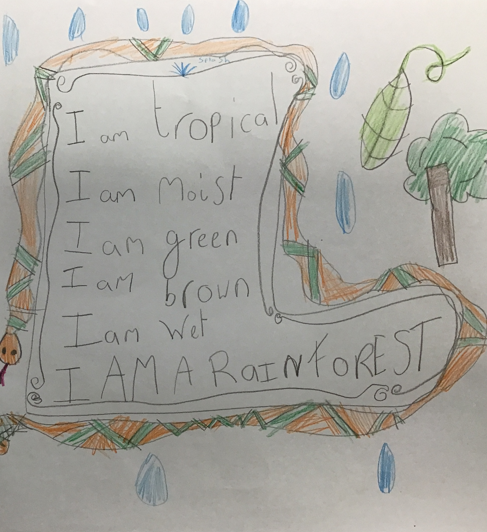 splash
I am tropical
I am moist
I am green
I am brown
I am wet
I AM A RaINfOREST